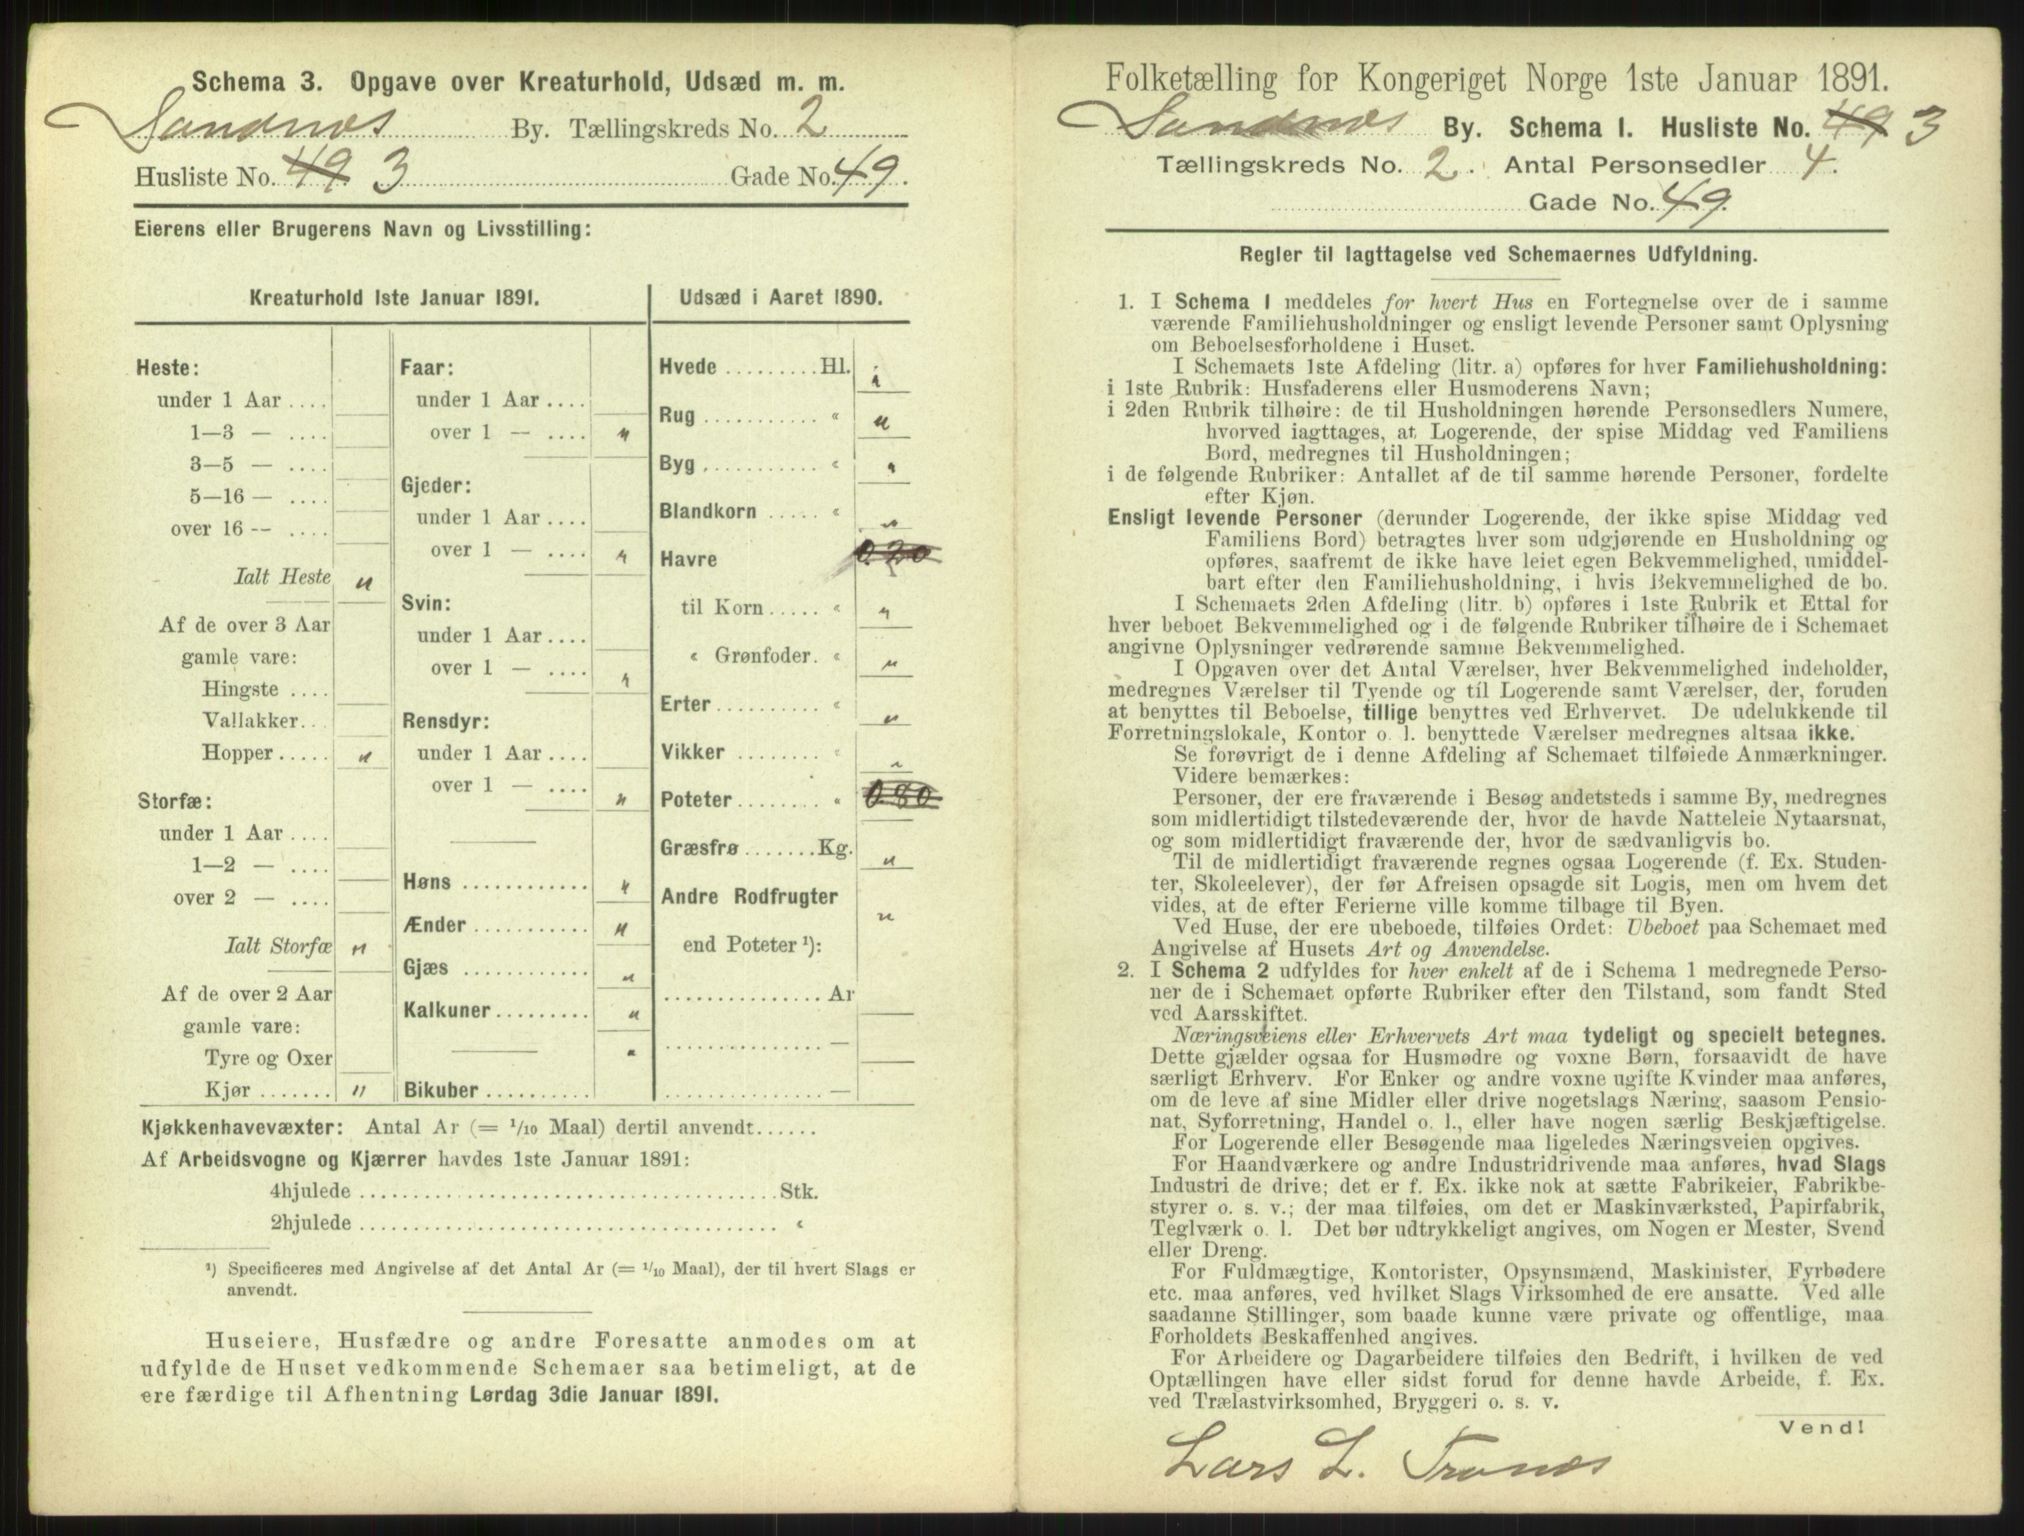 Schema 3. Opgave over Kreaturhold, Udsæd m. m.
Sandnæs By. Tællingskreds No. 2
Husliste No. 49. 3 Gade No. 49.
Eierens eller Brugerens Navn og Livsstilling:
Kreaturhold 1ste Januar 1891.
Heste:
under 1 Aar ....
1—3 — ....
3—5 — ....
5—16 — ....
over 16 -- ....
Ialt Heste "
Af de over 3 Aar
gamle vare:
Hingste ....
Vallakker..
Hopper ..... "
Storfæ:
under 1 Aar ....
1—2 — ....
over 2 — ....
Ialt Storfæ "
Af de over 2 Aar
gamle vare:
Tyre og Oxer
Kjør ....... "
Faar:
under 1 Aar ....
over 1 — .... "
Gjeder:
under 1 Aar ....
over 1 — .... "
Svin:
under 1 Aar ....
over 1 — .... "
Rensdyr:
under 1 Aar ....
over 1 — .... "
Høns ............ "
Ænder ........... "
Gjæs ............ "
Kalkuner ......... "
"
Bikuber ..........
Udsæd i Aaret 1890.
Hvede ......... Hl. "
Rug ........... « "
Byg ........... « "
Blandkorn ..... « "
Havre 0.20
til Korn ..... « "
« Grønfoder. « "
Erter .......... « "
Vikker « "
Poteter ........ « 0.80
Græsfrø ....... Kg. "
Andre Rodfrugter "
end Poteter ¹):
............... Ar
............... —
............... —
Kjøkkenhavevæxter: Antal Ar (= 1/10 Maal) dertil anvendt......
Af Arbeidsvogne og Kjærrer havdes 1ste Januar 1891:
4hjulede ........................................ Stk.
2hjulede ........................................ «
¹) Specificeres med Angivelse af det Antal Ar (= 1/10 Maal), der til hvert Slags er
anvendt.
Huseiere, Husfædre og andre Foresatte anmodes om at
udfylde de Huset vedkommende Schemaer saa betimeligt, at de
ere færdige til Afhentning Lørdag 3die Januar 1891.
Folketælling for Kongeriget Norge 1ste Januar 1891.
Sandnæs By. Schema 1. Husliste No. 49 3
Tællingskreds No. 2. Antal Personsedler 4.
Gade No. 49.
Regler til Iagttagelse ved Schemaernes Udfyldning.
1. I Schema 1 meddeles for hvert Hus en Fortegnelse over de i samme
værende Familiehusholdninger og ensligt levende Personer samt Oplysning
om Beboelsesforholdene i Huset.
I Schemaets 1ste Afdeling (litr. a) opføres for hver Familiehusholdning:
i 1ste Rubrik: Husfaderens eller Husmoderens Navn;
i 2den Rubrik tilhøire: de til Husholdningen hørende Personsedlers Numere,
hvorved iagttages, at Logerende, der spise Middag ved Familiens
Bord, medregnes til Husholdningen;
i de følgende Rubriker: Antallet af de til samme hørende Personer, fordelte
efter Kjøn.
Ensligt levende Personer (derunder Logerende, der ikke spise Middag ved
Familiens Bord) betragtes hver som udgjørende en Husholdning og
opføres, saafremt de ikke have leiet egen Bekvemmelighed, umiddel-
bart efter den Familiehusholdning, i hvis Bekvemmelighed de bo.
I Schemaets 2den Afdeling (litr. b) opføres i 1ste Rubrik et Ettal for
hver beboet Bekvemmelighed og i de følgende Rubriker tilhøire de i Schemaet
angivne Oplysninger vedrørende samme Bekvemmelighed.
I Opgaven over det Antal Værelser, hver Bekvemmelighed indeholder,
medregnes Værelser til Tyende og til Logerende samt Værelser, der, foruden
at benyttes til Beboelse, tillige benyttes ved Erhvervet. De udelukkende til
Forretningslokale, Kontor o. l. benyttede Værelser medregnes altsaa ikke.
Se forøvrigt de i denne Afdeling af Schemaet tilføiede Anmærkninger.
Videre bemærkes:
Personer, der ere fraværende i Besøg andetsteds i samme By, medregnes
som midlertidigt tilstedeværende der, hvor de havde Natteleie Nytaarsnat,
og som midlertidigt fraværende der, hvor de sædvanligvis bo.
Til de midlertidigt fraværende regnes ogsaa Logerende (f. Ex. Studen-
ter, Skoleelever), der før Afreisen opsagde sit Logis, men om hvem det
vides, at de efter Ferierne ville komme tilbage til Byen.
Ved Huse, der ere ubeboede, tilføies Ordet: Ubeboet paa Schemaet med
Angivelse af Husets Art og Anvendelse.
2. I Schema 2 udfyldes for hver enkelt af de i Schema 1 medregnede Perso-
ner de i Schemaet opførte Rubriker efter den Tilstand, som fandt Sted
ved Aarsskiftet.
Næringsveiens eller Erhvervets Art maa tydeligt og specielt betegnes.
Dette gjælder ogsaa for Husmødre og voxne Børn, forsaavidt de have
særligt Erhverv. For Enker og andre voxne ugifte Kvinder maa anføres,
om de leve af sine Midler eller drive nogetslags Næring, saasom Pensio-
nat, Syforretning, Handel o. l., eller have nogen særlig Beskjæftigelse.
For Logerende eller Besøgende maa ligeledes Næringsveien opgives.
For Haandværkere og andre Industridrivende maa anføres, hvad Slags
Industri de drive; det er f. Ex. ikke nok at sætte Fabrikeier, Fabrikbe-
styrer o. s. v.; der maa tilføies, om det er Maskinværksted, Papirfabrik,
Teglværk o. l. Det bør udtrykkeligt angives, om Nogen er Mester, Svend
eller Dreng.
For Fuldmægtige, Kontorister, Opsynsmænd, Maskinister, Fyrbødere
etc. maa anføres, ved hvilket Slags Virksomhed de ere ansatte. Ved alle
saadanne Stillinger, som baade kunne være private og offentlige, maa
Forholdets Beskaffenhed angives.
For Arbeidere og Dagarbeidere tilføies den Bedrift, i hvilken de ved
Optællingen have eller sidst forud for denne havde Arbeide, f. Ex.
ved Trælastvirksomhed, Bryggeri o. s. v.
Vend!
Lars L. Tronæs